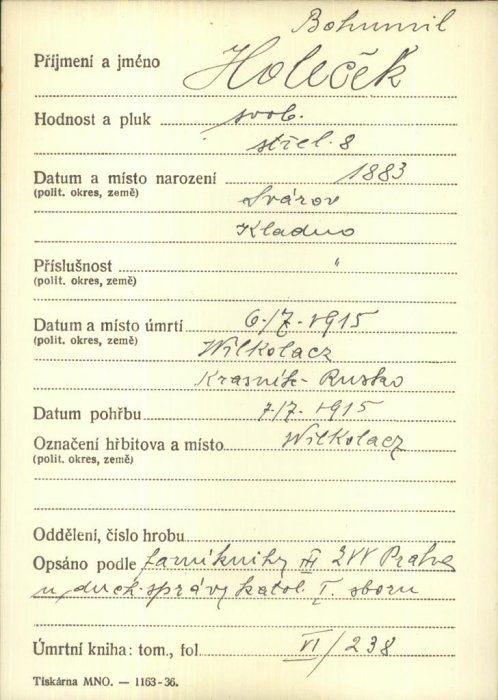 Bohumil
Příjmení a jméno Holeček
Hodnost a pluk svob.
střel. 8
Datum a místo narození 1883
(polit. okres, země) Svárov
Kladno
Příslušnost "
(polit. okres, země)
Datum a místo úmrtí 6/7 1915
(polit. okres, země) Wilkolacz
Krasník - Rusko
Datum pohřbu 7/7. 1915
Označení hřbitova a místo Wilkolacz
(polit. okres, země)
Oddělení, číslo hrobu
Opsáno podle farní knihy III ZVV Praha
u duch. správy katol. I. sboru
Úmrtní kniha: tom., fol. VI/238
Tiskárna MNO. — 1163-36.